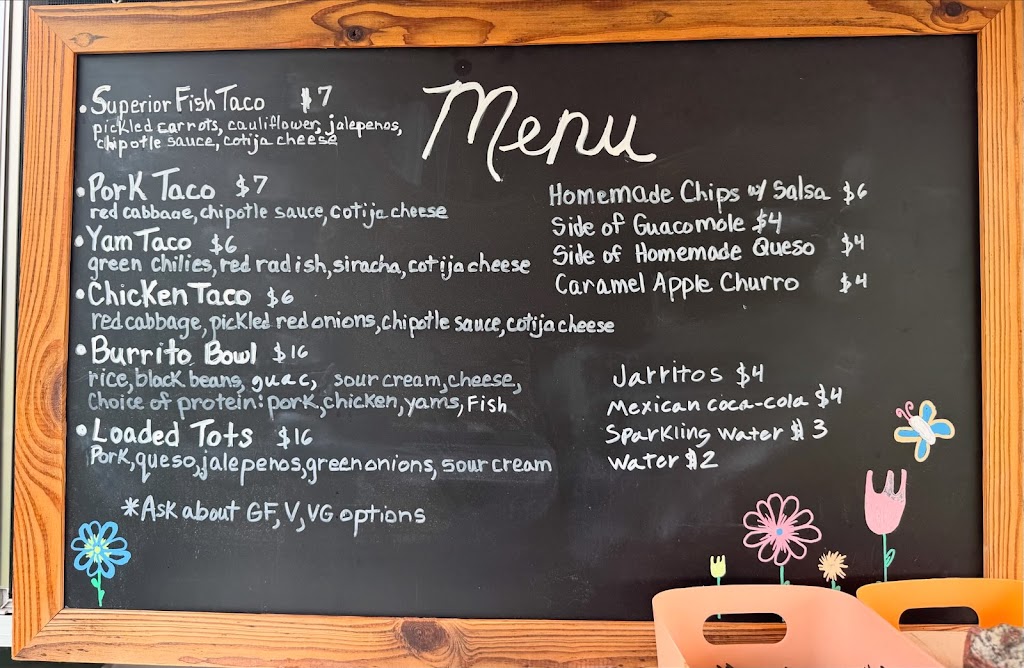 Menu
• Superior Fish Taco $7
pickled carrots, cauliflower, jalepenos,
chipotle sauce, cotija cheese
• Pork Taco $7
red cabbage, chipotle sauce, cotija cheese
• Yam Taco $6
green chilies, red radish, siracha, cotija cheese
• Chicken Taco $6
red cabbage, pickled red onions, chipotle sauce, cotija cheese
• Burrito Bowl $16
rice, black beans, guac, sour cream, cheese,
Choice of protein: pork, chicken, yams, Fish
• Loaded Tots $16
Pork, queso, jalepenos, green onions, sour cream
*Ask about GF, V, VG options
Homemade Chips w/ Salsa $6
Side of Guacomole $4
Side of Homemade Queso $4
Caramel Apple Churro $4
Jarritos $4
Mexican coca-cola $4
Sparkling Water $3
Water $2